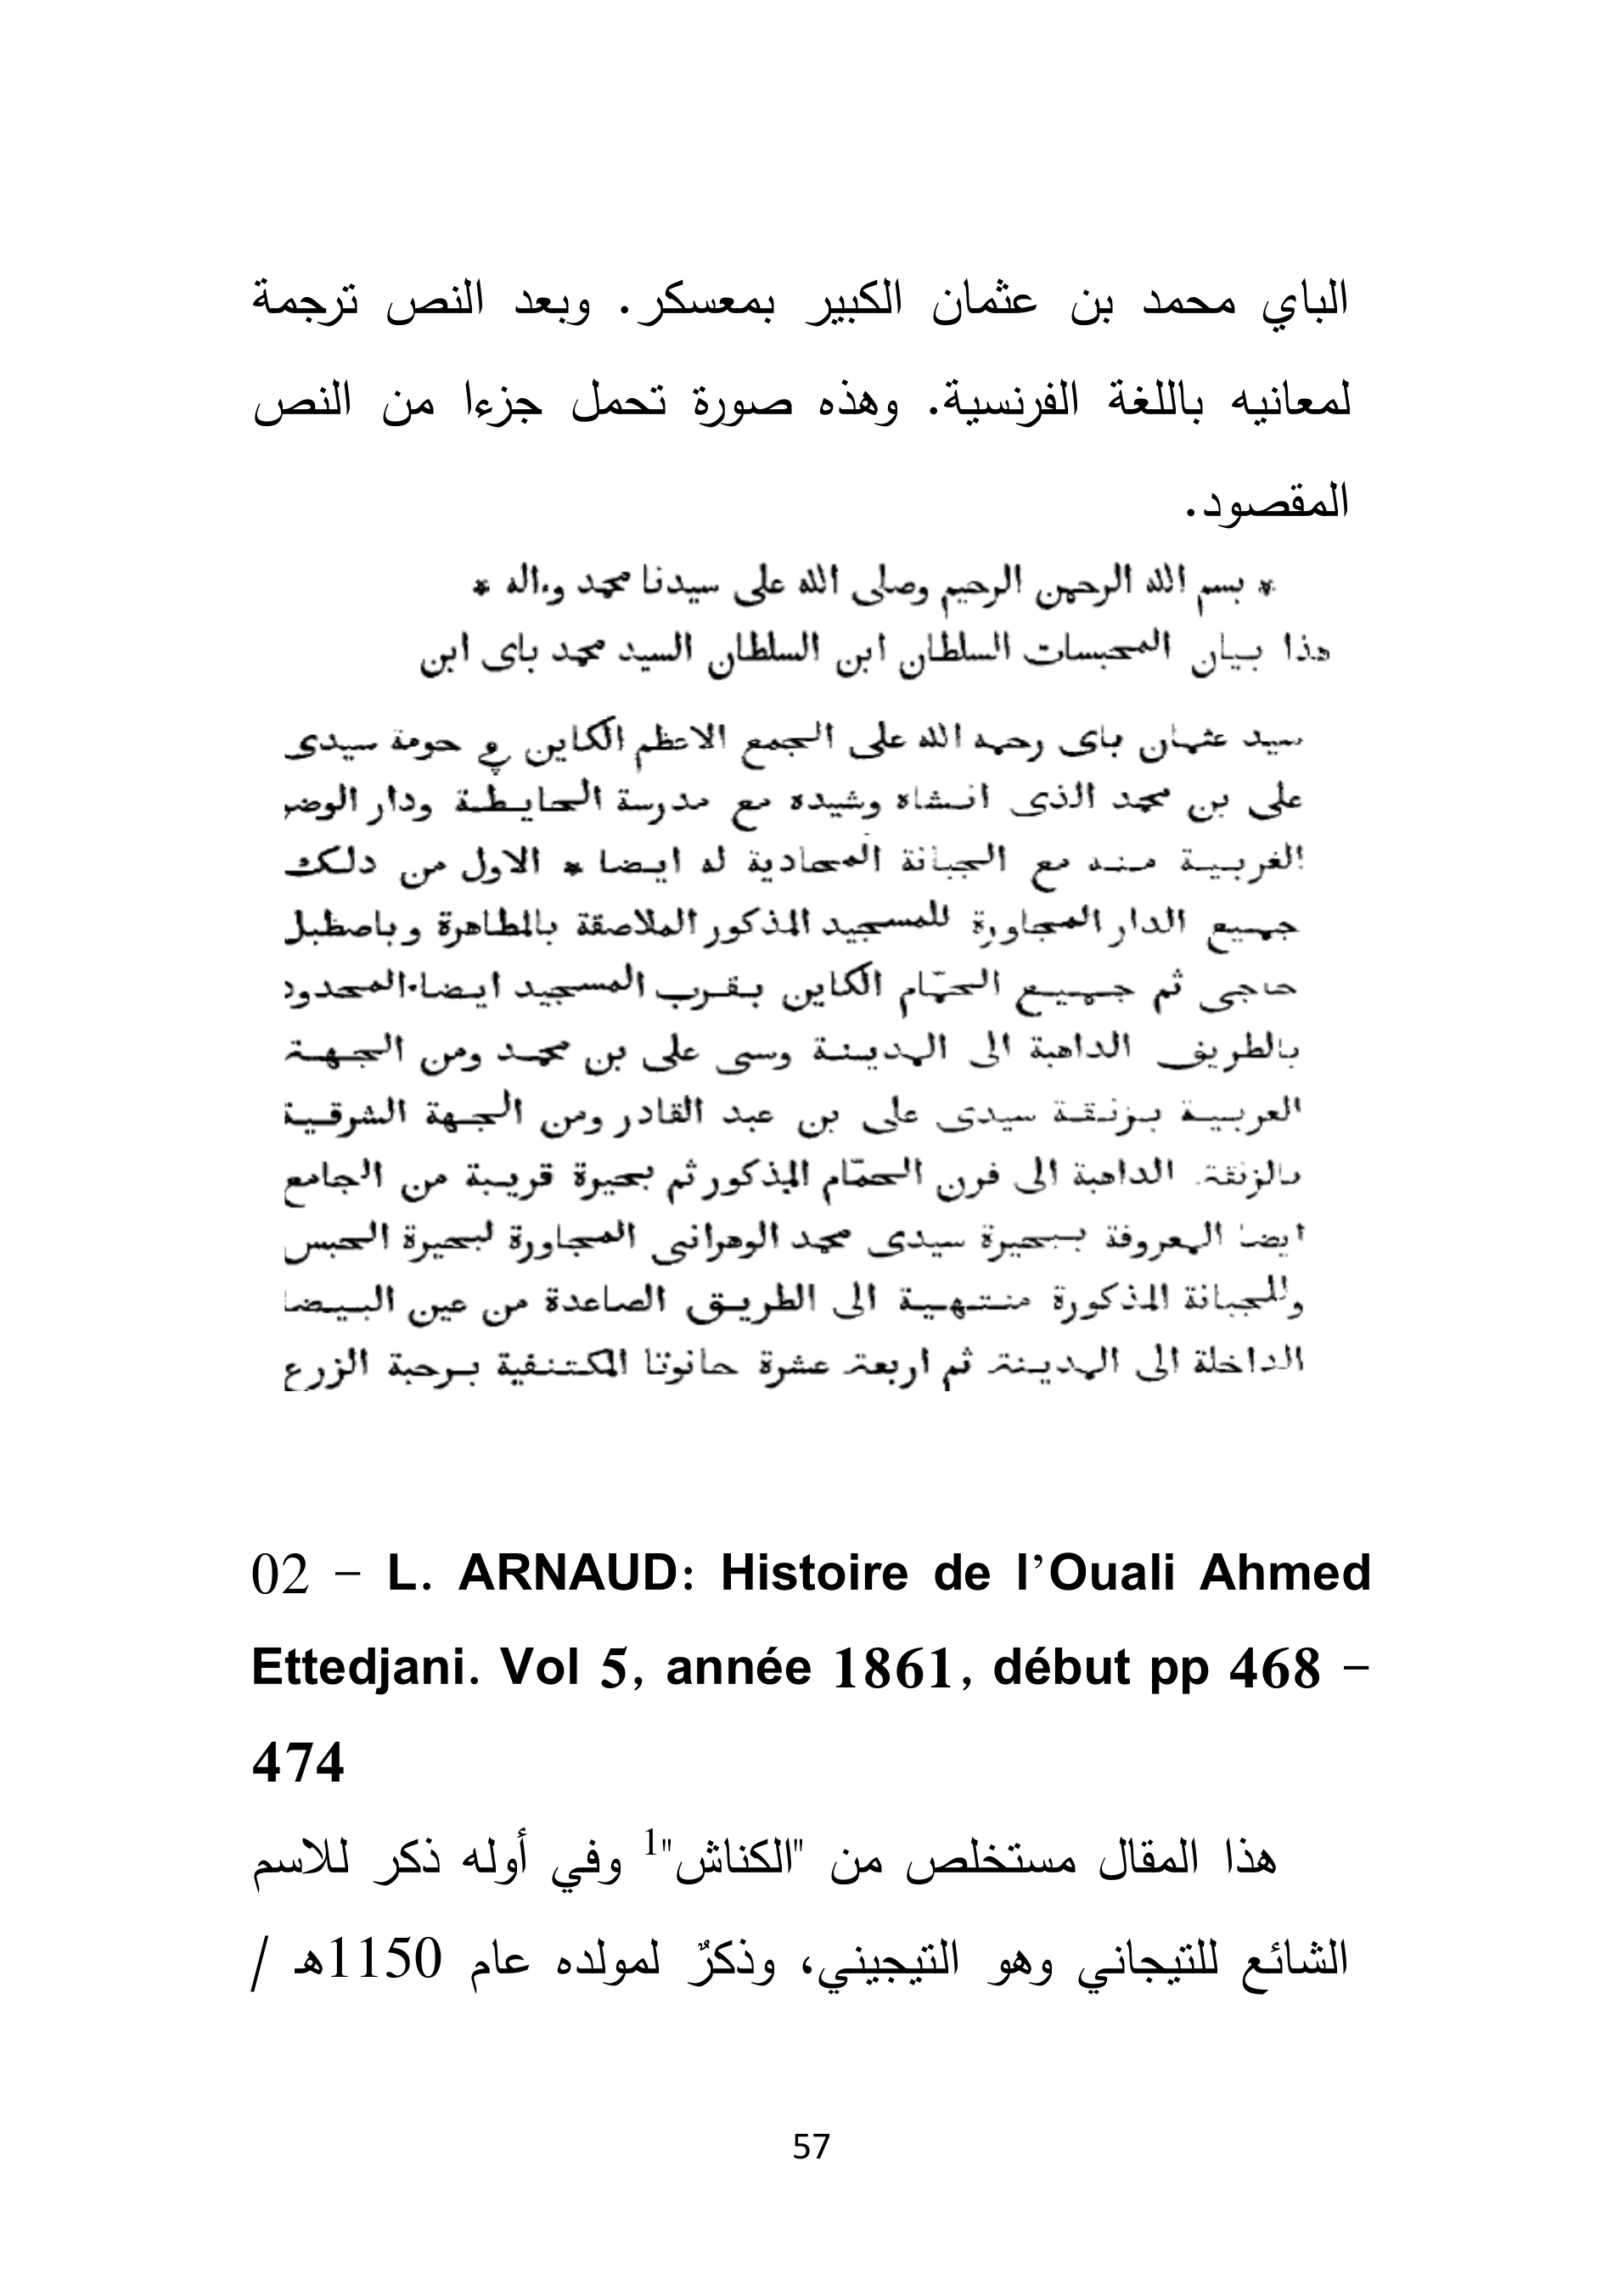 الباي محمد بن عثمان الكبير بمعسكر. وبعد النص ترجمة
لمعانيه باللغة الفرنسية. وهذه صورة تحمل جزءا من النص
المقصود.
* بسم الله الرحمن الرحيم وصلى الله على سيدنا محمد وءاله *
هذا بيان المحبسات السلطان ابن السلطان السيد محمد باى ابن
سيد عثمان باى رحمه الله على الجمع الاعظم الكاين في حومة سيدى
على بن محمد الذى انشاه وشيده مع مدرسة الحايطة ودار الوضو
الغربية منه مع الجبانة المحادية له ايضا * الاول من دلك
جميع الدار المجاورة للمسجيد المذكور الملاصقة بالمطاهرة وباصطبل
حاجى ثم جميع الحمّام الكاين بقرب المسجيد ايضا المحدود
بالطريق الداهبة الى المدينة وسى على بن محمد ومن الجهة
العربية بزنقة سيدى على بن عبد القادر ومن الجهة الشرقية
بالزنقة الداهبة الى فرن الحمّام المذكور ثم بحيرة قريبة من الجامع
ايضا المعروفة ببحيرة سيدى محمد الوهرانى المجاورة لبحيرة الحبس
وللجبانة المذكورة منتهية الى الطريق الصاعدة من عين البيضا
الداخلة الى المدينة ثم اربعة عشرة حانوتا المكتنفية برحبة الزرع
02 – L. ARNAUD: Histoire de l’Ouali Ahmed
Ettedjani. Vol 5, année 1861, début pp 468 –
474
هذا المقال مستخلص من "الكناش"1 وفي أوله ذكر للاسم
الشائع للتيجاني وهو التيجيني، وذكرٌ لمولده عام 1150هـ /
57